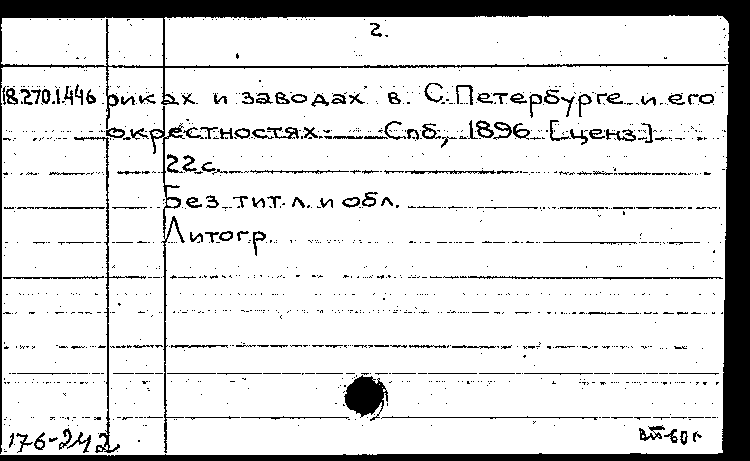 2.
18.270.1.446 риках и заводах в. С.Петербурге и его
окрестностях. Спб, 1896 [ценз]
22с.
Без тит. л. и обл.
Литогр.
176-242